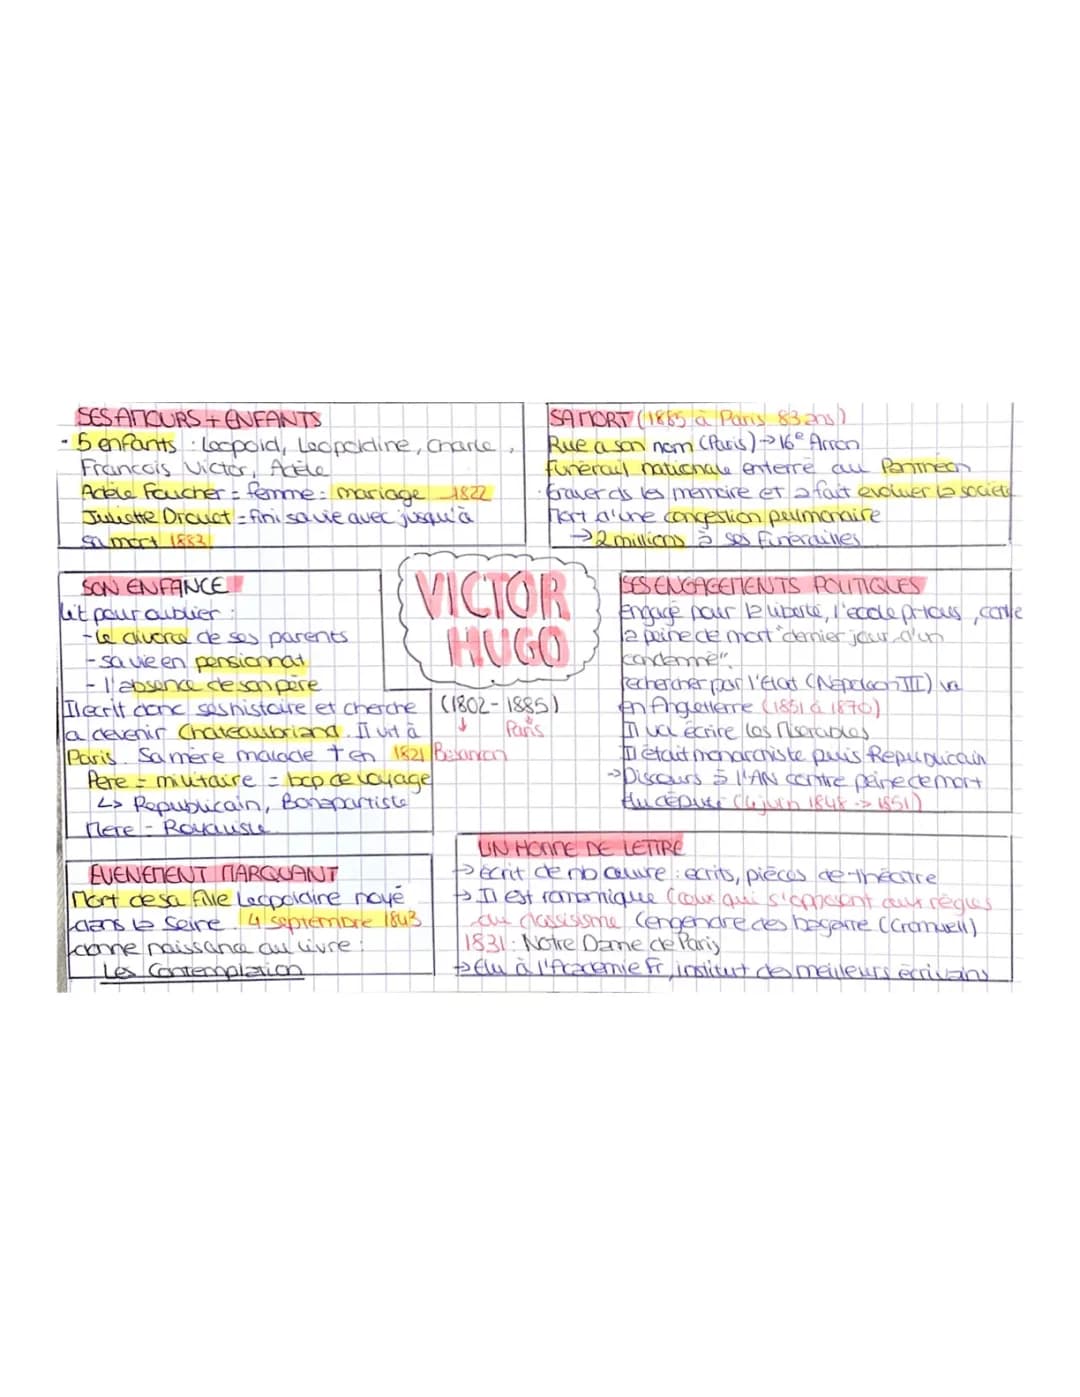 SES AMOURS + ENFANTS
- 5 enfants : Leopold, Leopoldine, Charle,
Francois Victor, Adèle
Adèle Foucher = femme : mariage 1822
Juliette Drouet = fini sa vie avec jusqu'à
sa mort 1883
SA MORT (1885 à Paris 83 ans)
Rue a son nom (Paris) → 16e Arron
funérail nationale enterré au Panthéon
graver ds les mémoire et a fait évoluer la societé
Mort d'une congestion pulmonaire
→ 2 millions à ses funérailles
SON ENFANCE
Lit pour oublier :
- le divorce de ses parents
- sa vie en pensionnat
- l'absence de son père
Il écrit donc ses histoire et cherche
a devenir Chateaubriand. Il vit à
Paris. Sa mère malade † en 1821
Père = militaire = bcp de voyage
↳ Republicain, Bonapartiste
Mère - Royaliste
VICTOR
HUGO
(1802 - 1885)
↓ Paris
Besancon
SES ENGAGEMENTS POLITIQUES
Engagé pour la liberté, l'école pr tous, contre
la peine de mort "dernier jour d'un
condamné".
rechercher par l'Etat (Napoleon III) va
en Angleterre (1851 à 1870)
Il va écrire Les Miserables
Il était monarchiste puis Republicain
→ Discours à l'AN contre peine de mort
élu député (4 juin 1848 -> 1851)
EVENEMENT MARQUANT
Mort de sa fille Leopoldine noyé
dans la Seine. 4 septembre 1843
donne naissance au livre :
Les Contemplation
UN HOMME DE LETTRE
→ écrit de nb œuvre : ecrits, pièces de théatre
→ Il est romantique (ceux qui s'opposent aux règles
du classisisme (engendre des bagarre (Cromwell)
1831 : Notre Dame de Paris
→ Elu à l'Academie Fr, institut des meilleurs écrivans